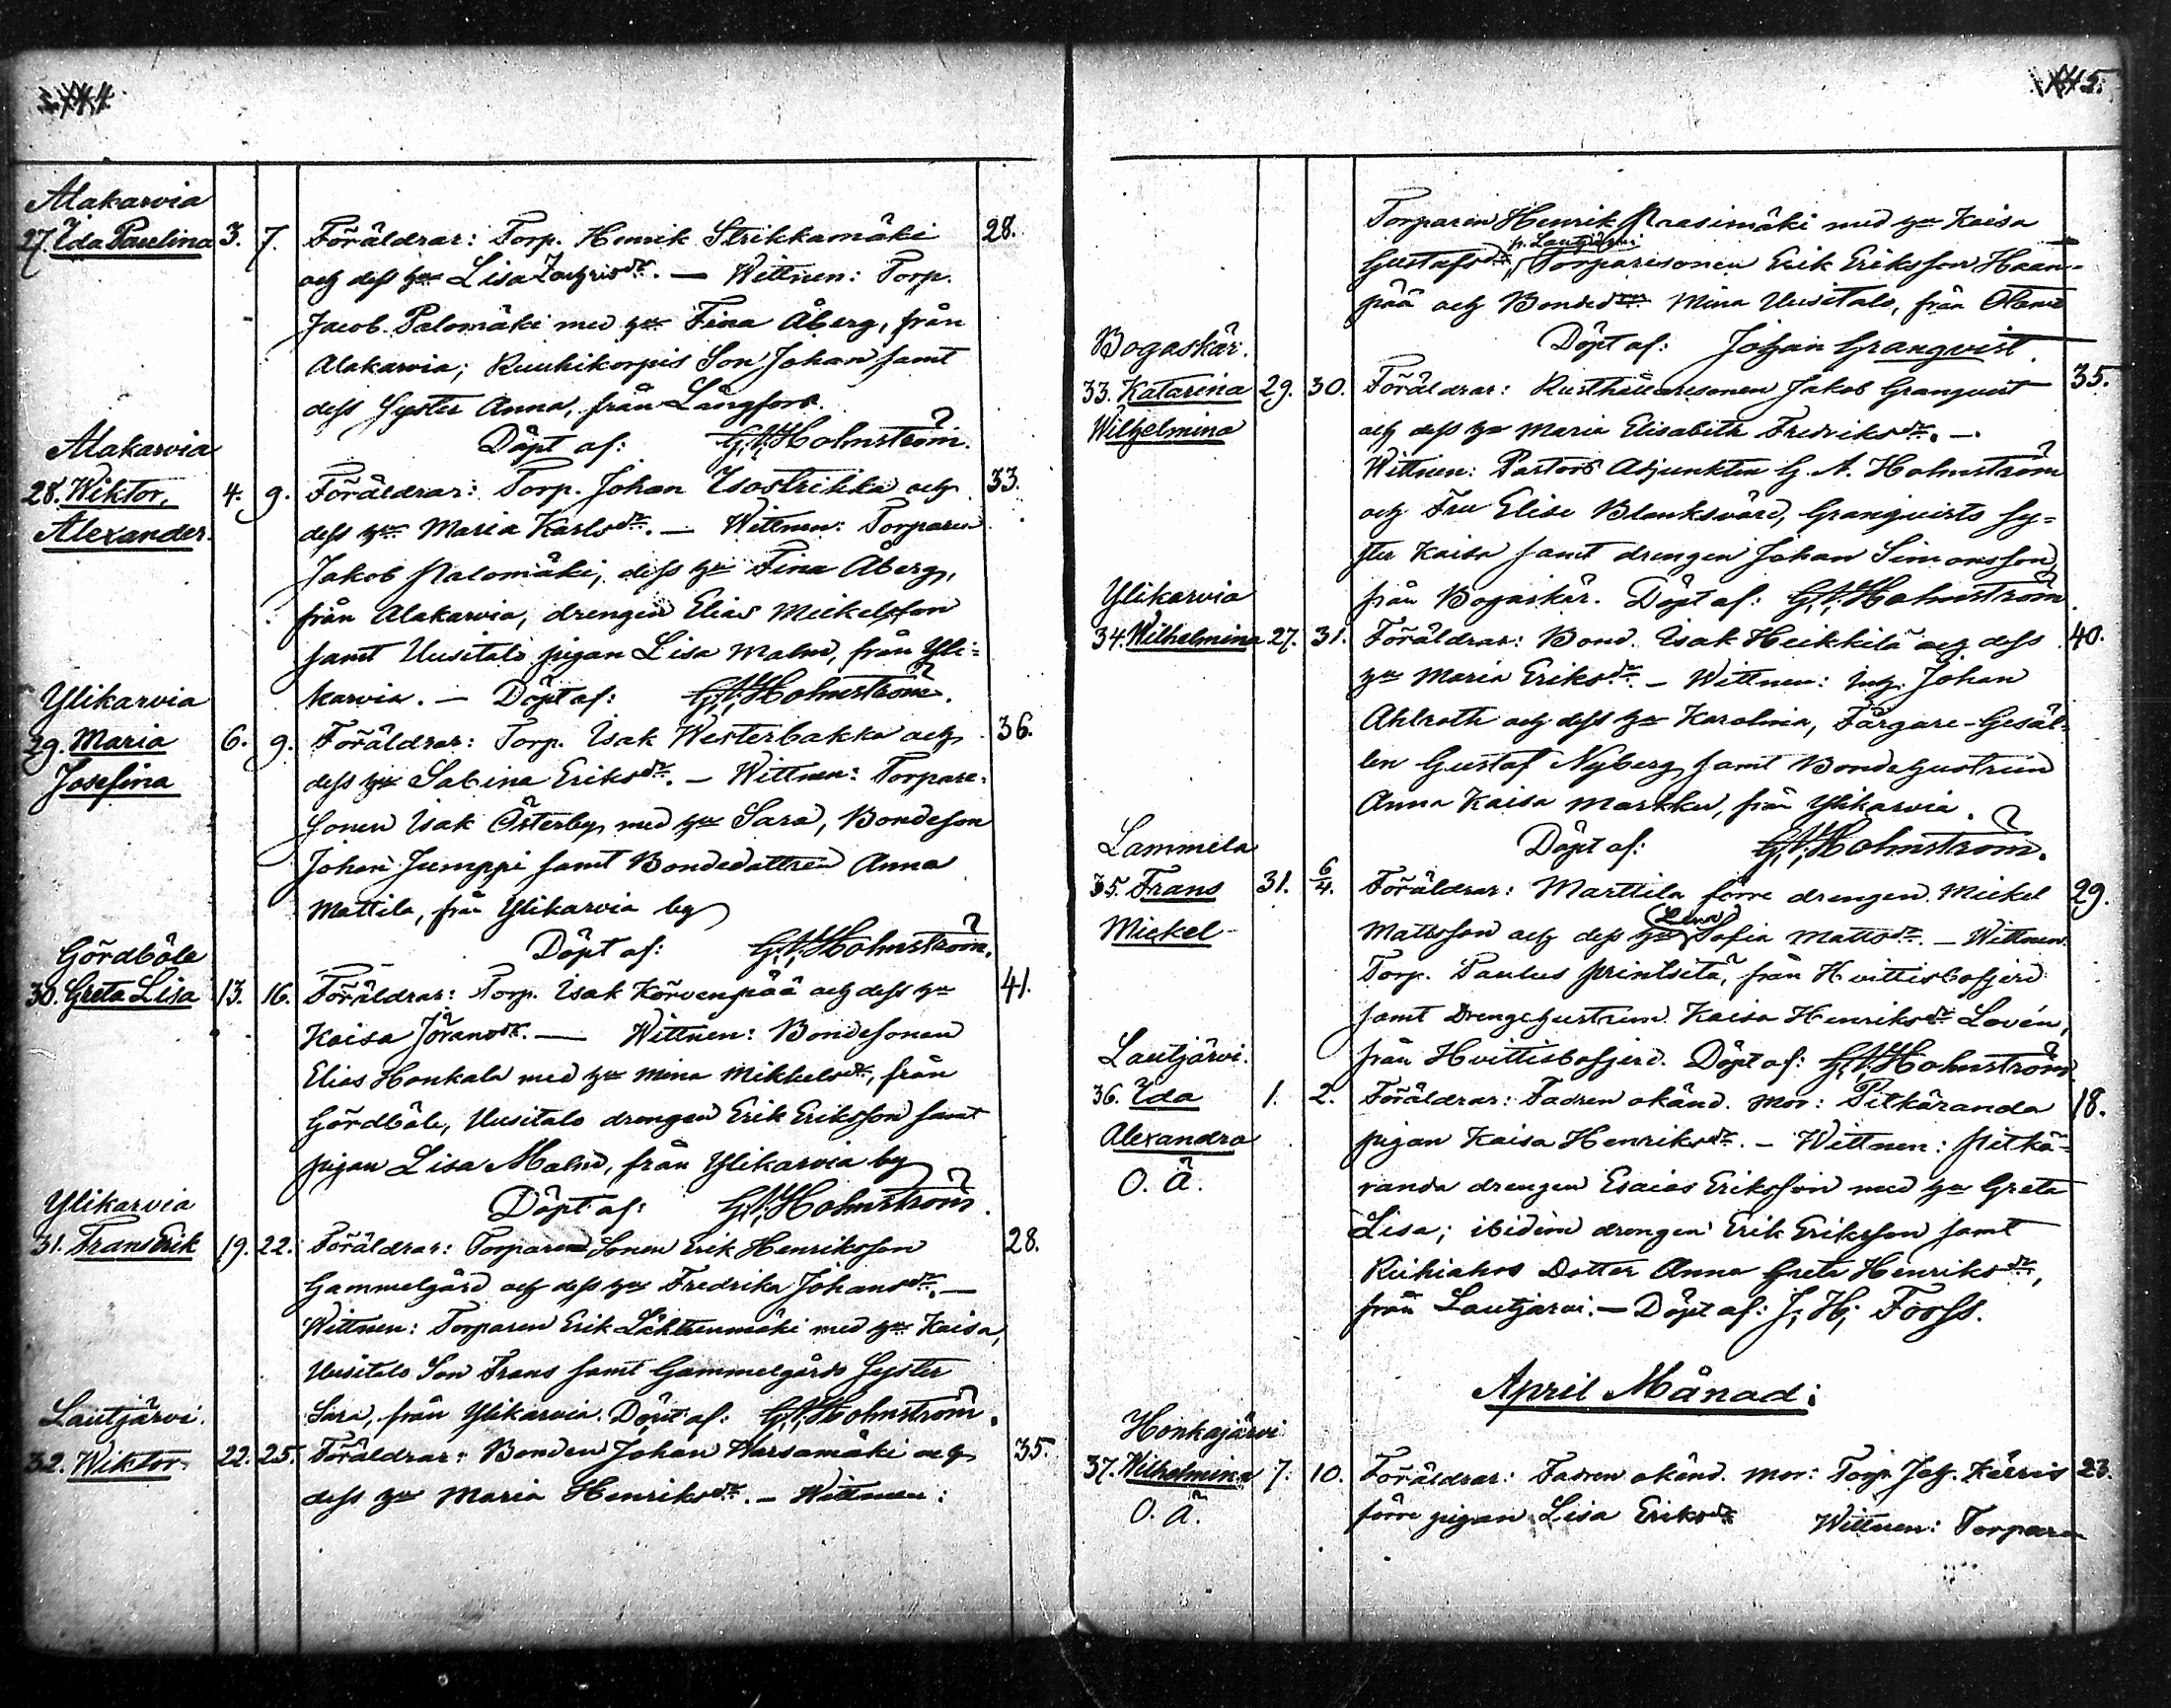 Alakarvia
27. Ida Paulina 3. 7. Föräldrar: Torp. Henrik Strikkamäki 28.
och dess hu Lisa Zachrisdr. — Wittnen: Torp.
Jacob Palomäki med hu Fina Åberg, från
Alakarvia; Ruuhikorpis Son Johan samt
dess Syster Anna, från Långfors.
Döpt af: G.A. Holmström.
Alakarvia
28. Wiktor 4. 9. Föräldrar: Torp. Johan Isostrikka och 33.
Alexander. dess hu Maria Karlsdr. — Wittnen: Torparen
Jakob Palomäki, dess hu Fina Åberg,
från Alakarvia, drengen Elias Mickelsson
samt Uusitalo pigan Lisa Malm, från Yli=
karvia. — Döpt af: G.A. Holmström.
Ylikarvia
29. Maria 6. 9. Föräldrar: Torp. Isak Westerbakka och 36.
Josefina dess hu Sabina Eriksdr. — Wittnen: Torpare-
sonen Isak Österby med hu Sara, Bondeson
Johan Jumppi samt Bondedottren Anna
Mattila, från Ylikarvia by
Döpt af: G.A. Holmström.
Gördböle
30. Greta Lisa 13. 16. Föräldrar: Torp. Isak Korvenpää och dess hu 41.
Kaisa Joransdr. — Wittnen: Bondesonen
Elias Honkala med hu Mina Mikkelsdr, från
Gördböle, Uusitalo drengen Erik Eriksson samt
pigan Lisa Malm, från Ylikarvia by
Döpt af: G.A. Holmström.
Ylikarvia
31. Frans Erik 19. 22. Föräldrar: Torparen Sonen Erik Henriksson 28.
Gammelgård och dess hu Fredrika Johansdr. —
Wittnen: Torparen Erik Lähteenmäki med hu Kaisa,
Uusitalo Son Frans samt Gammelgårds Syster
Sara, från Ylikarvia. Döpt af: G.A. Holmström.
Lautjärvi.
32. Wiktor. 22. 25. Föräldrar: Bonden Johan Warsamäki och 35.
dess hu Maria Henriksdr. — Wittnen:
5.
Torparen Henrik Praasimäki med hu Kaisa
fr. Lautjärvi
Gustafsdr, Torparesonen Erik Eriksson Haan=
pää och Bonded Mina Uusitalo, från
Döpt af: Johan Granqvist.
Bogaskär.
33. Katarina 29. 30. Föräldrar: Rusthållaresonen Jakob Granqvist 35.
Wilhelmina och dess hu Maria Elisabeth Fredriksdr. —
Wittnen: Pastors Adjunkten G. A. Holmström
och Fru Elise Blanksvärd, Granqvists Sy=
ster Kaisa samt drengen Johan Simonsson,
från Bogaskär. Döpt af: G.A. Holmström.
Ylikarvia
34. Wilhelmina 27. 31. Föräldrar: Bond. Isak Heikkilä och dess 40.
hu Maria Eriksdr. — Wittnen: Inh. Johan
Ahlroth och dess hu Karolina, Färgare-Gesäl=
len Gustaf Nyberg samt Bondehustrun
Anna Kaisa Markku, från Ylikarvia.
Döpt af: G.A. Holmström.
Lammela
35. Frans 31. 6/4. Föräldrar: Marttila förre drengen Mickel 29.
Lena
Mickel Mattsson och dess hu Sofia Mattsdr. — Wittnen
Torp. Paulus Printsitä, från Hvittisbofjerd
samt Drengehustrun Kaisa Henriksdr Lovén,
från Hvittisbofjerd. Döpt af: G.A. Holmström
Lautjärvi.
36. Ida 1. 2. Föräldrar: Fadren okänd. Mor: Pitkäranda 18.
Alexandra pigan Kaisa Henriksdr. — Wittnen: Pitkä=
O. Ä. randa drengen Esaias Eriksson med hu Greta
Lisa; ibidem drengen Erik Eriksson samt
Riihiahos Dotter Anna Greta Henriksdr,
från Lautjärvi. — Döpt af: J. H. Forss.
April Månad:
Honkajärvi
37. Wilhelmina 7. 10. Föräldrar: Fadren okänd. Mor: Torp. Joh. Kärris 23.
O. Ä. förre pigan Lisa Eriksdr Wittnen: Torparen